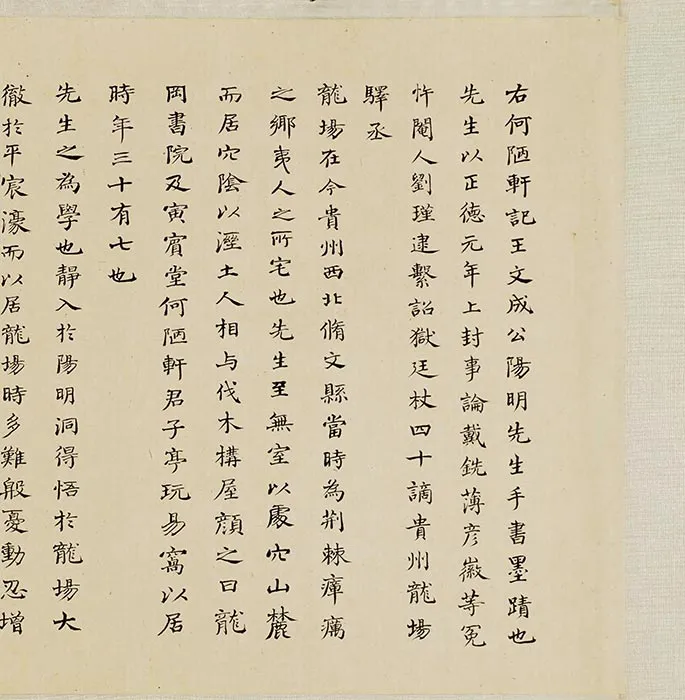 右何陋軒記王文成公陽明先生手書墨蹟也
先生以正德元年上封事論戴銑薄彦徽等冤
忤閹人劉瑾逮繫詔獄廷杖四十謫貴州龍場
驛丞
龍場在今貴州西北脩文縣當時為荆棘瘴癘
之鄉夷人之所宅也先生至無室以處穴山麓
而居穴陰以溼土人相与伐木搆屋顔之曰龍
岡書院及寅賓堂何陋軒君子亭玩易窩以居
時年三十有七也
先生之為學也靜入於陽明洞得悟於龍場大
徹於平宸濠而以居龍場時多難般憂動忍增